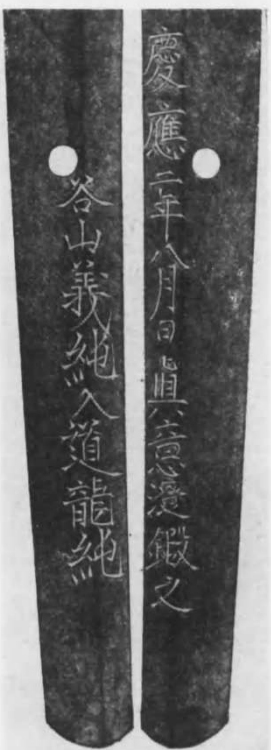 慶應二年八月日眞意鍛之
谷山義純入道龍純